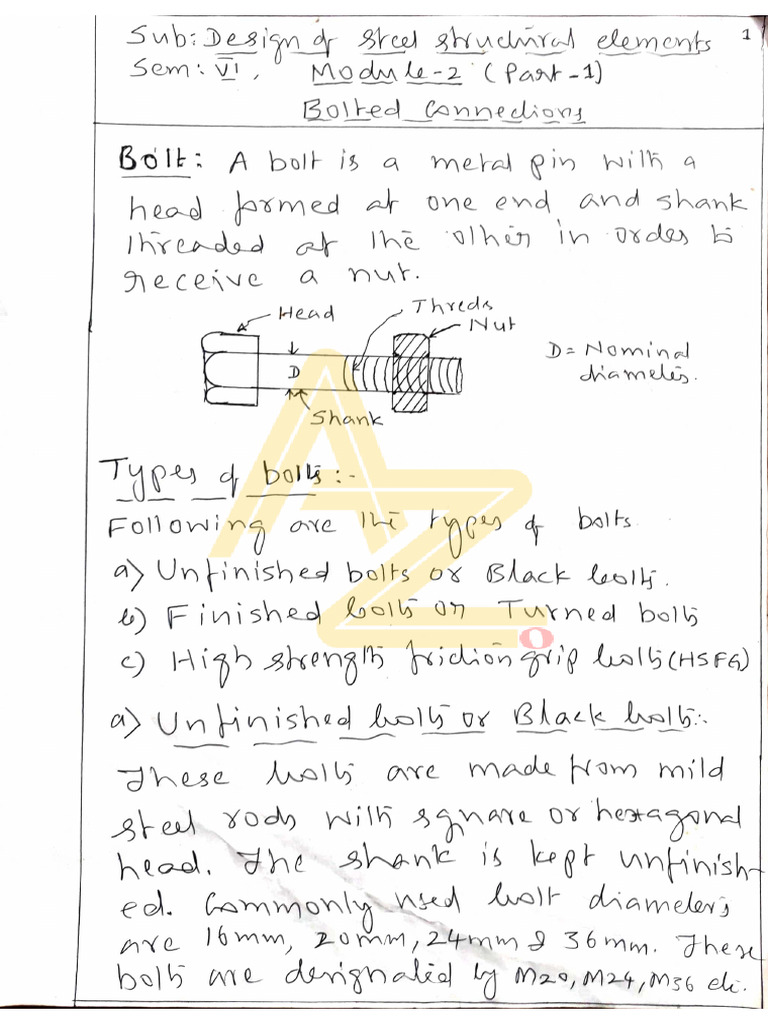 1
Sub: Design of steel structural elements
Sem: VI, Module-2 (Part-1)
Bolted Connections
Bolt: A bolt is a metal pin with a
head formed at one end and shank
threaded at the other in order to
receive a nut.
Head
Threds
Nut
D = Nominal
diameter.
D
Shank
Types of bolts:-
Following are the types of bolts
a) Unfinished bolts or Black bolts.
b) Finished bolts or Turned bolts
c) High strength friction grip bolts (HSFG)
a) Unfinished bolts or Black bolts:-
These bolts are made from mild
steel rods with square or hexagonal
head. The shank is kept unfinish-
ed. Commonly used bolt diameters
are 16mm, 20mm, 24mm & 36mm. These
bolts are designated by M20, M24, M36 etc.
AZO